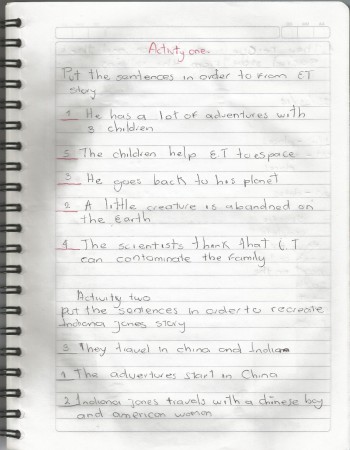 Activity one.
Put the sentences in order to from ET
story
1 He has a lot of adventures with
3 children
5 The children help ET to espace
3 He goes back to his planet
2 A little creature is abandned on
the Earth
4 The scientists think that E.T
can contaminate the family
Activity two
put the sentences in order to recreate
Indiana jones story
3 They travel in china and India
1 The adventures start in China
2 Indiana jones travels with a chinese boy
and american woman